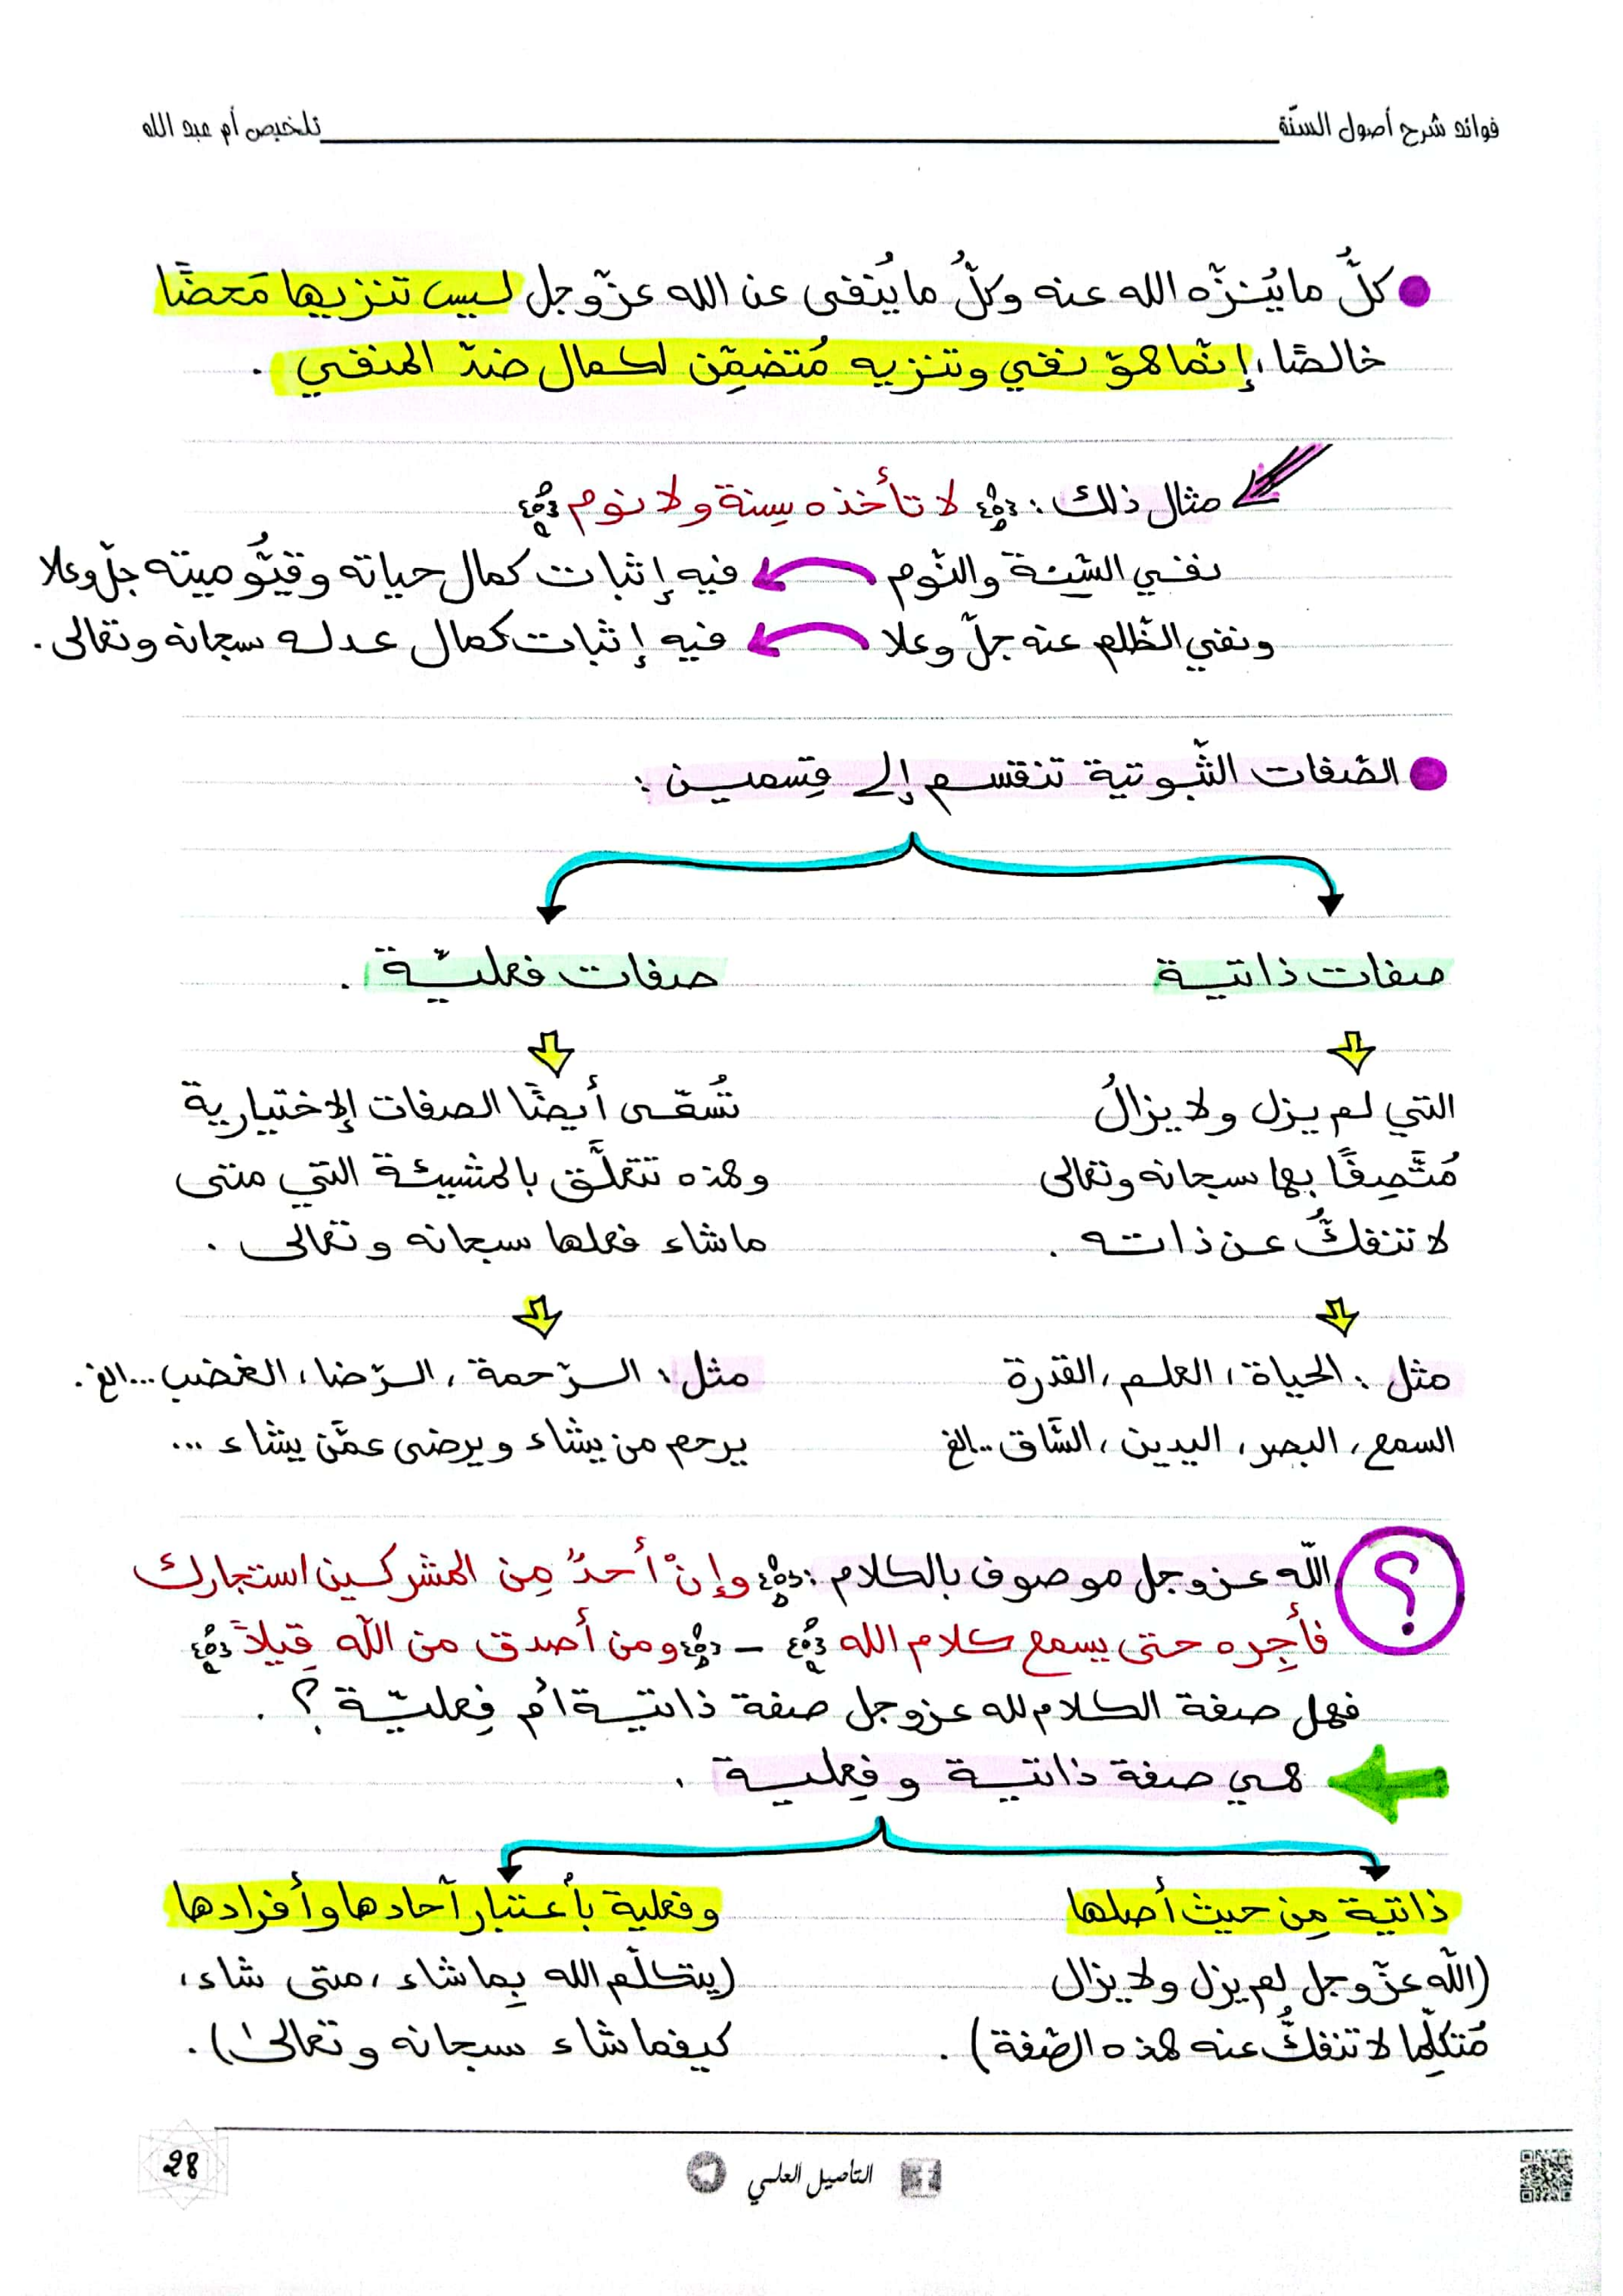 فوائد شرح أصول السنّة
تلخيص أم عبد الله
كلُّ ما يُنزّه الله عنه وكلُّ ما يُنفى عن الله عزّوجل ليس تنزيها مَحضًا
خالصًا، إنّما هو نفي وتنزيه مُتضمِّن لكمال ضدّ المنفي .
مثال ذلك : ﴿ لا تأخذه سِنة ولا نوم ﴾
نفي السِّنة والنّوم فيه إثبات كمال حياته وقيُّوميته جلّ وعلا
ونفي الظّلم عنه جلّ وعلا فيه إثبات كمال عدله سبحانه وتعالى .
الصّفات الثّبوتية تنقسم إلى قِسمين :
صفات ذاتية
صفات فعليّة .
التي لم يزل ولا يزالُ
مُتَّصِفًا بها سبحانه وتعالى
لا تنفكُّ عن ذاته .
تُسمّى أيضًا الصفات الإختيارية
وهذه تتعلَّق بالمشيئة التي متى
ما شاء فعلها سبحانه وتعالى .
مثل : الحياة، العلم، القدرة
السمع، البصر، اليدين، السَّاق ..الخ
مثل : الرّحمة، الرّضا، الغضب ...الخ .
يرحم من يشاء ويرضى عمَّن يشاء ...
؟
اللّه عزوجل موصوف بالكلام : ﴿ وإنْ أحدٌ مِن المشركين استجارك
فأجِره حتى يسمع كلام الله ﴾ - ﴿ ومن أصدق من اللّه قِيلاً ﴾
فهل صفة الكلام لله عزوجل صفة ذاتية أم فِعليّة ؟ .
هي صفة ذاتية وفِعلية .
ذاتية مِن حيث أصلها
(اللّه عزّوجل لم يزل ولا يزال
مُتكلِّما لا تنفكُّ عنه هذه الصّفة) .
وفعلية بأعتبار آحادها وأفرادها
(يتكلّم الله بِما شاء، متى شاء،
كيفما شاء سبحانه وتعالىٰ) .
التأصيل العلمي
28